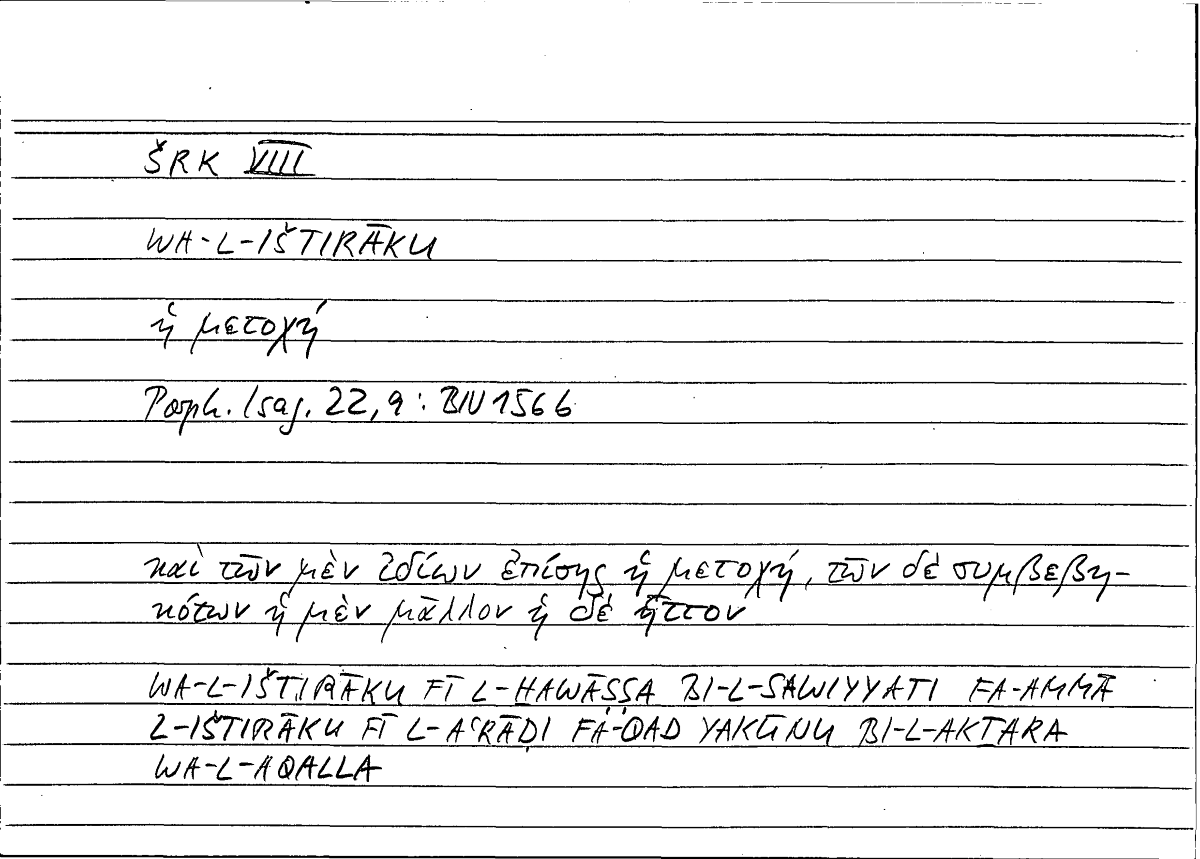 ŠRK VIII
WA-L-IŠTIRĀKU
ἡ μετοχή
Porph. Isag. 22, 9 : BN 1566
καὶ τῶν μὲν ἰδίων ἐπίσης ἡ μετοχή, τῶν δὲ συμβεβη-
κότων ἡ μὲν μᾶλλον ἡ δὲ ἧττον
WA-L-IŠTIRĀKU FĪ L-ḪAWĀṢṢA BI-L-SAWIYYATI FA-AMMĀ
L-IŠTIRĀKU FĪ L-AʿRĀḌI FA-QAD YAKŪNU BI-L-AKṮARA
WA-L-AQALLA